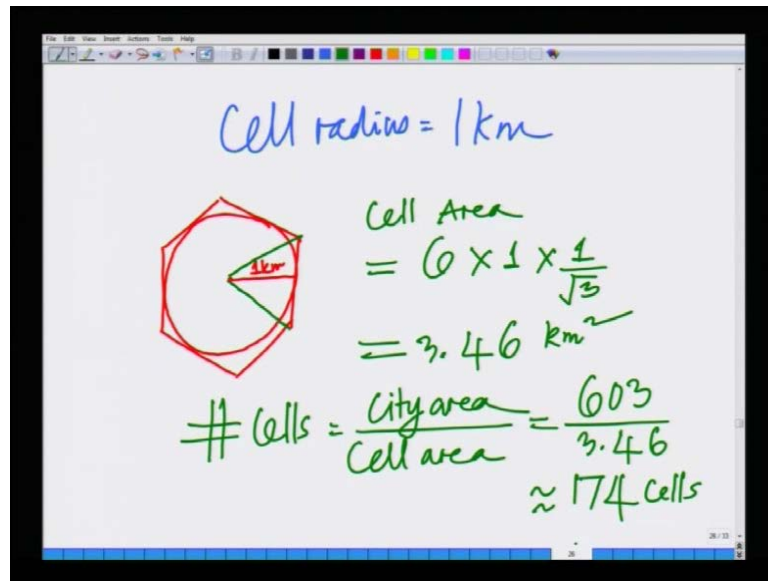 File Edit View Insert Actions Tools Help
Cell radius = 1 km
1km
Cell Area
= 6 × 1 × 1/√3
= 3.46 km²
# Cells = City area / Cell area = 603 / 3.46
≈ 174 Cells
26/33
26